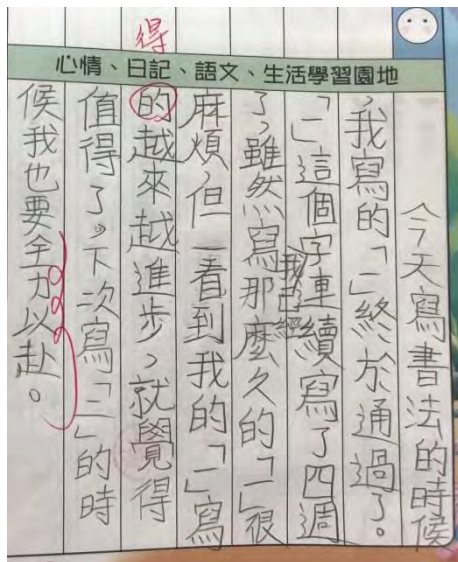 心情、日記、語文、生活學習園地
今天寫書法的時候
,我寫的「一」終於通過了。
「一」這個字我已經連續寫了四週
了,雖然寫那麼久的「一」很
麻煩,但一看到我的「一」寫
得
的越來越進步,就覺得
值得了。下次寫「二」的時
候我也要全力以赴。